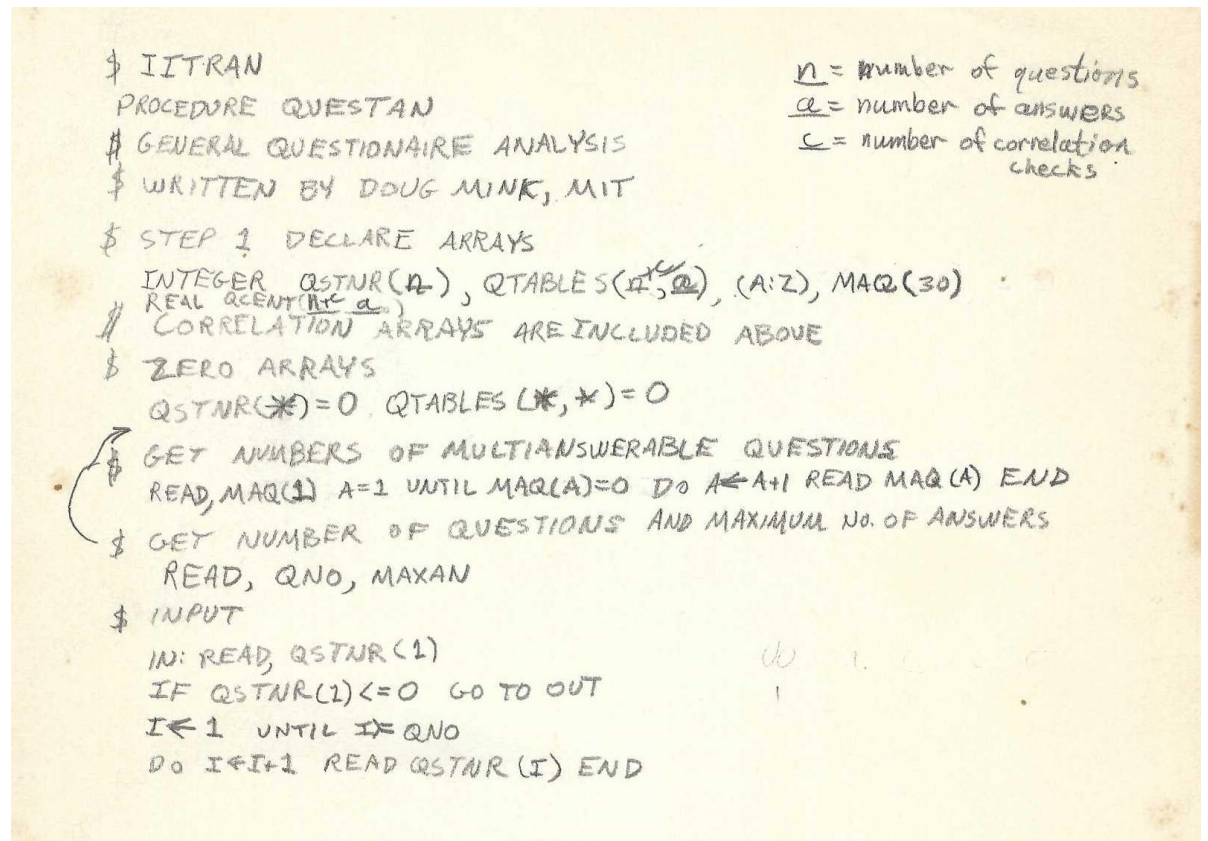 $ IITRAN
PROCEDURE QUESTAN
$ GENERAL QUESTIONAIRE ANALYSIS
$ WRITTEN BY DOUG MINK, MIT
n = number of questions
a = number of answers
c = number of correlation
checks
$ STEP 1 DECLARE ARRAYS
INTEGER QSTNR(n), QTABLES(n+c, a), (A:Z), MAQ(30)
REAL QCENT(n+c a)
$ CORRELATION ARRAYS ARE INCLUDED ABOVE
$ ZERO ARRAYS
QSTNR(*)=0 QTABLES(*,*)=0
$ GET NUMBERS OF MULTIANSWERABLE QUESTIONS
READ, MAQ(1) A=1 UNTIL MAQ(A)=0 DO A←A+1 READ MAQ(A) END
$ GET NUMBER OF QUESTIONS AND MAXIMUM NO. OF ANSWERS
READ, QNO, MAXAN
$ INPUT
IN: READ, QSTNR(1)
IF QSTNR(1)<=0 GO TO OUT
I←1 UNTIL I>=QNO
DO I←I+1 READ QSTNR(I) END